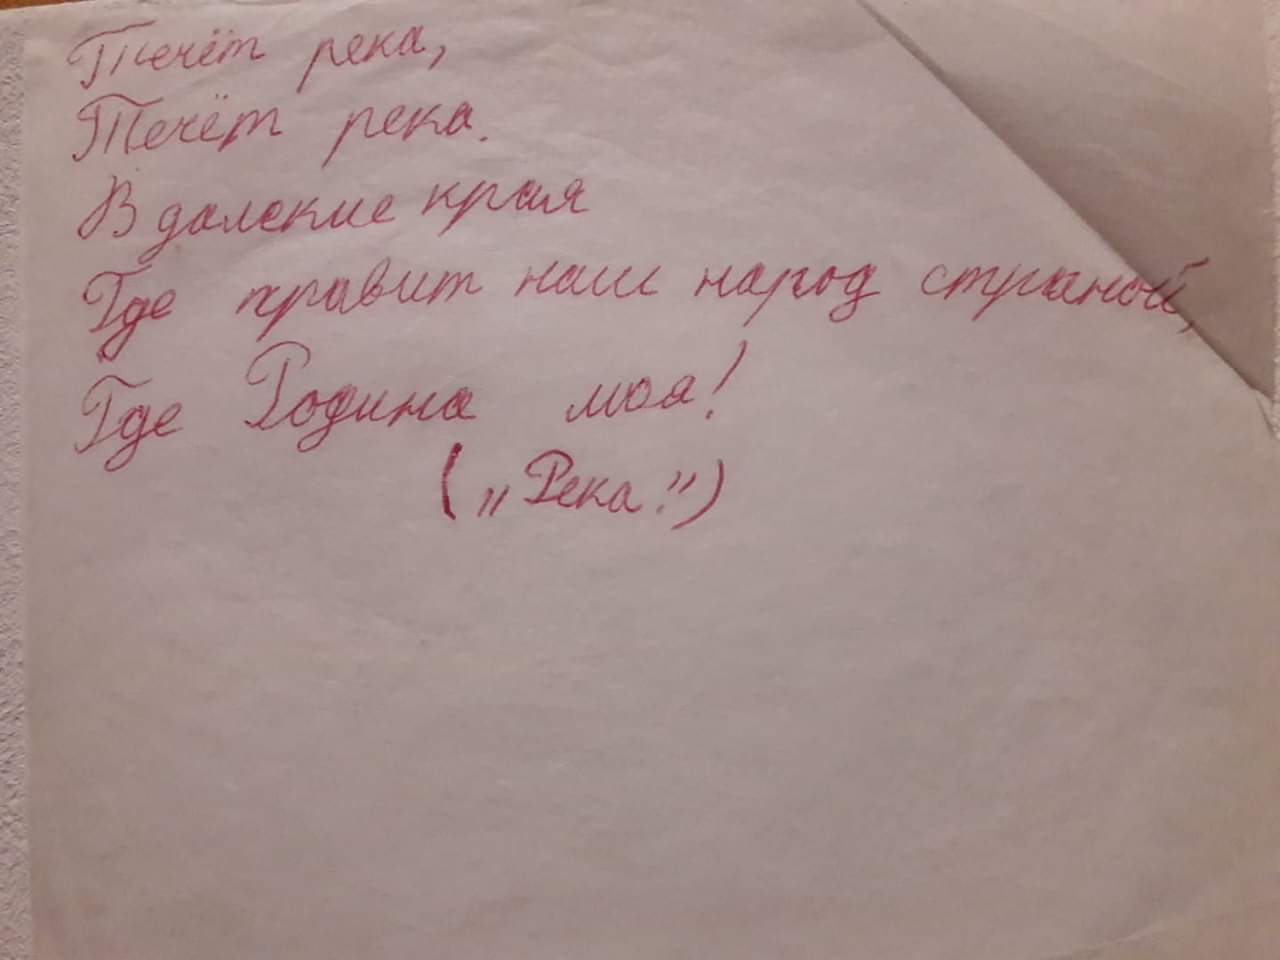 Течёт река,
Течёт река.
В далекие края
Где правит наш народ страной,
Где Родина моя!
(„Река!”)